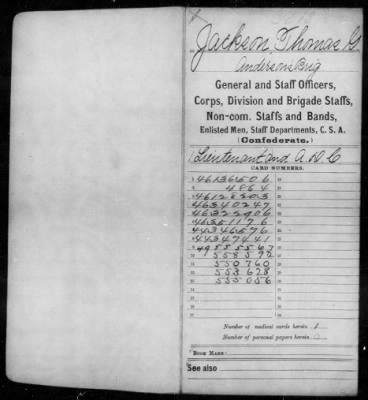 Jackson, Thomas G.
Anderson's Brig
General and Staff Officers,
Corps, Division and Brigade Staffs,
Non-com. Staffs and Bands,
Enlisted Men, Staff Departments, C. S. A.
(Confederate.)
Lieutenant and A. D. C
CARD NUMBERS.
46136506
4864
46128203
46340247
46322906
46351176
44346576
44347441
49555567
558592
550760
553628
555056
Number of medical cards herein
Number of personal papers herein
BOOK MARK:
See also